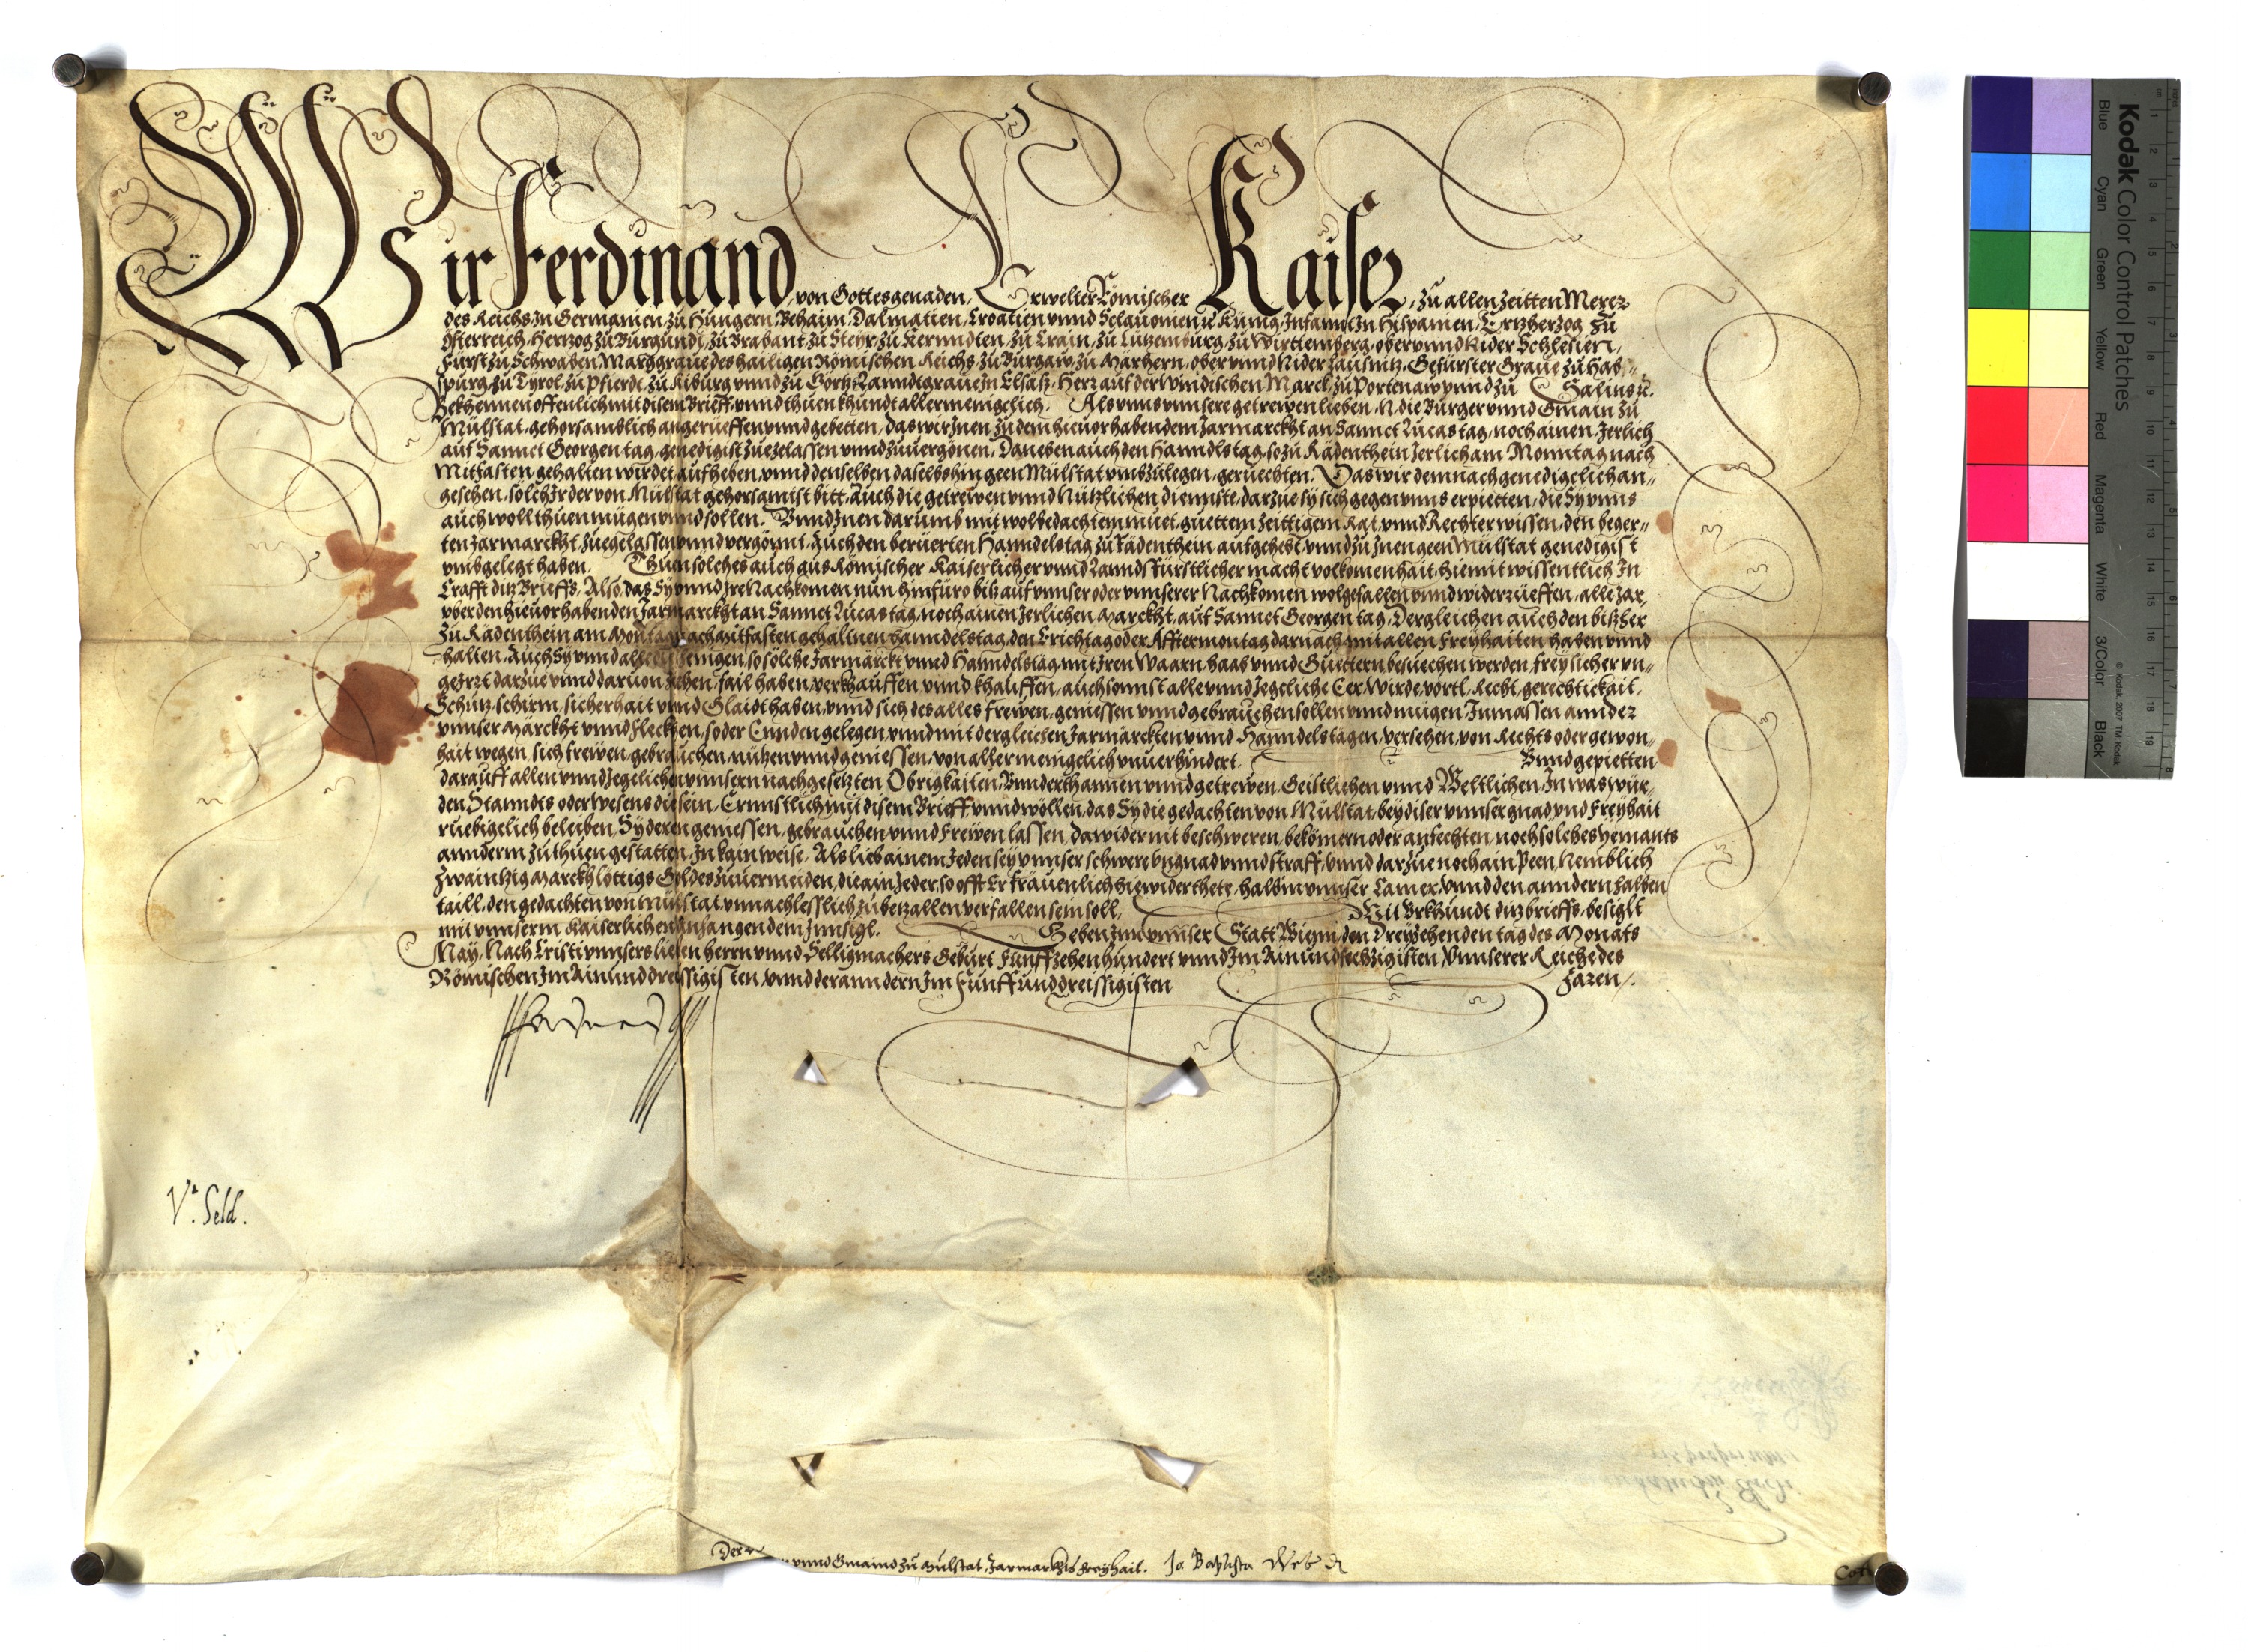 Wir Ferdinand, von Gottes genaden, Erwelter Römischer Kaiser, zu allen Zeitten Merer
des Reichs, In Germanien, zu Hungern, Behaim, Dalmatien, Croatien vnnd Sclauonien rc. Künig, Infannt In Hispanien, Ertzherzog zu
Österreich, Hertzog zu Burgundi, zu Brabant, zu Steyr, zu Kerndten, zu Crain, zu Lutzemburg, zu Wirttemberg, ober vnnd Nider Schlesien,
Fürst zu Schwaben, Marggraue des hailigen Römischen Reichs, zu Burgaw, zu Märhern, ober vnnd Nider Lausnitz, Gefürster Graue zu Has,,
spurg, zu Tyrol, zu Pfierdt, zu Kiburg vnnd zu Görtz, Lanndtgraue In Elsäss, Herr auf der Windischen Marck, zu Portenaw vnnd zu Salins rc.
Bekhennen offenlich mit disem Brieff, vnnd thuen khundt allermenigclich. Als vnns vnnsere getrewen lieben, N. die Burger vnnd Gmain zu
Mülstat, gehorsamblich angerueffen vnnd gebetten, das wir Inen zu dem hieuor habendem Jarmarckht an Sannct Lucas tag, noch ainen, Jerlich
auf Sannct Georgen tag, genedigist zuezelassen vnnd zuuergönen, Daneben auch den Hanndlstag, so zu Kädenthein Jerlich am Monntag nach
Mitfasten gehalten wirdet, aufheben, vnnd denselben daselbshin geen Mülstat vmbzulegen, geruechten. Das wir demnach genedigclich an,,
gesehen, solch Ir der von Mülstat gehorsamist bitt, Auch die getrewen vnnd Nutzlichen diennste, darzue sy sich gegen vnns erpietten, die Sy vnns
auch woll thuen mügen vnnd sollen. Vnnd Inen darumb mit wolbedachtem muet, guettem zeittigem Rat, vnnd Rechter wissen, den beger,,
ten Jarmarckht, zuegelassen vnnd vergönnt, Auch den berüerten Hanndelstag zu Kädenthein aufgehebt, vnnd zu Inen geen Mülstat genedigist
vmbgelegt haben. Thuen solches auch aus Römischer Kaiserlicher vnnd Lanndsfürstlicher macht volkomenhait, hiemit wissentlich In
Crafft ditz Brieffs, Also, das Sy vnnd Ire Nachkomen nun hinfüro bitz auf vnnser oder vnnserer Nachkomen wolgefallen vnnd widerrüeffen, alle Jar,
vber den hieuor habenden Jarmarckht an Sannct Lucas tag, noch ainen Jerlichen Marckht, auf Sannct Georgen tag, Dergleichen auch den bissher
zu Kädenthein am Montag nach Mitfasten gehaltnen Hanndelstag, den Erichtag oder Afftermontag darnach, mit allen Freyhaiten haben vnnd
halten, Auch Sy vnnd alle die Jenigen, so solche Jarmärckt vnnd Hanndelstäg mit Iren Waarn, haab vnnd Guettern besuechen werden, frey sicher vn,,
geirrt darzue vnnd daruon ziehen, fail haben, verkhauffen vnnd khauffen, auch sonnst alle vnnd Jegeliche Eer, Wirde, vortl, Recht, gerechtickait,
Schutz, schirm, sicherhait vnnd Glaidt haben, vnnd sich des alles frewen, geniessen vnnd gebrauchen sollen vnnd mügen Inmassen annder
vnnser Märckht vnnd Fleckhen, so der Ennden gelegen, vnnd mit dergleichen Jarmärckten vnnd Hanndelstägen, versehen, von Rechts oder gewon,,
hait wegen, sich frewen, gebrauchen, nützen vnnd geniessen, von allermenigelich vnuerhindert. Vnnd gepietten
darauff allen vnnd Jegelichen vnnsern nachgesetzten Obrigkaiten, Vnnderthannen vnnd getrewen, Geistlichen vnnd Weltlichen, In was wür,
den Stanndts oder wesens die sein, Ernnstlich mit disem Brieff, vnnd wöllen, das Sy die gedachten von Mülstat, bey diser vnnser gnad vnd Freyhait
ruebigclich beleiben, Sy deren geniessen, gebrauchen vnnd Frewen lassen, dawider nit beschweren, bekömern oder anfechten, noch solches yemants
annderm zuthuen gestatten, In kain weise, Als lieb ainem Jeden sey vnnser schwere vngnad vnnd straff, vnnd darzue noch ain Peen, Nemblich
Zwaintzig Marckh löttigs Goldes zuuermeiden, die ain Jeder, so offt Er fräuenlich hiewider thete, halb In vnnser Camer, vnnd den anndern halben
taill, den gedachten von Mülstat, vnnachlesslich zubezallen verfallen sein soll. Mit Vrkhundt ditz brieffs, besiglt
mit vnnserm Kaiserlichen anhangendem Innsigl. Geben In vnnser Statt Wienn, den Dreyzehenden tag des Monats
May, Nach Cristi vnnsers lieben herrn vnnd Selligmachers Geburt Funffzehenhundert vnnd Im Ainundsechzigisten, Vnnserer Reiche des
Römischen Im Ainunddreissigisten, vnnd der anndern Im Funffunddreissigisten Jaren /.
Ferdinand
Vt. Seld.
vnnd Gmaind zu Mülstat, Jarmarkhts Freyhait. Jo. Baptista Weber